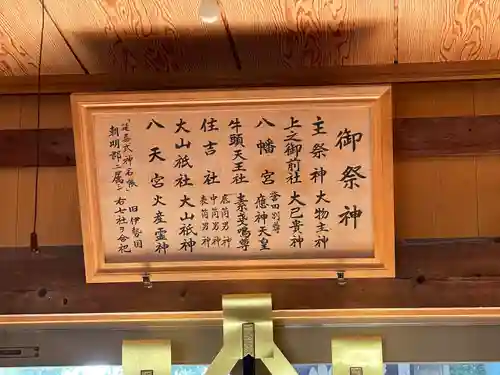 御祭神
主祭神 大物主神
上之御前社 大己貴神
八幡宮 誉田別尊 應神天皇
牛頭天王社 素戔嗚尊
住吉社 底筒男神 中筒男神 表筒男神
大山祇社 大山祇神
八天宮 火産霊神
「延喜式神名帳」旧伊勢国
朝明郡ニ属シ 右七社ヲ合祀